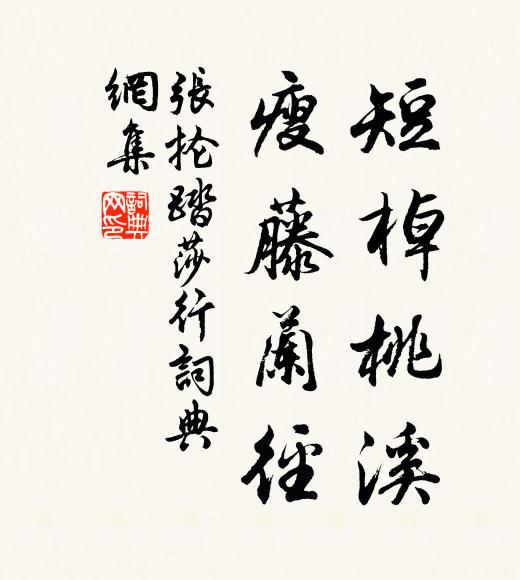 短棹桃溪
瘦藤蘭徑
張掄踏莎行詞典
網集
詞典網印